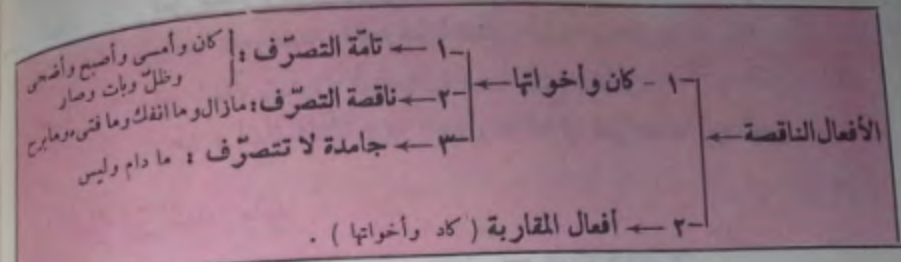 الأفعال الناقصة
١ - كان وأخواتها
١ - تامّة التصرّف : كان وأمسى وأصبح وأضحى
وظلّ وبات وصار
٢ - ناقصة التصرّف : مازال وما انفك وما فتىء وما برح
٣ - جامدة لا تتصرّف : ما دام وليس
٢ - أفعال المقاربة ( كاد وأخواتها ) .